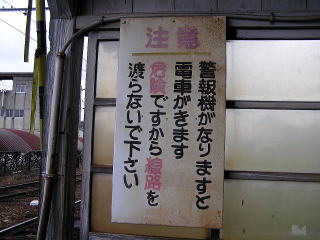 注意
警報機がなりますと
電車がきます
危険ですから線路を
渡らないで下さい